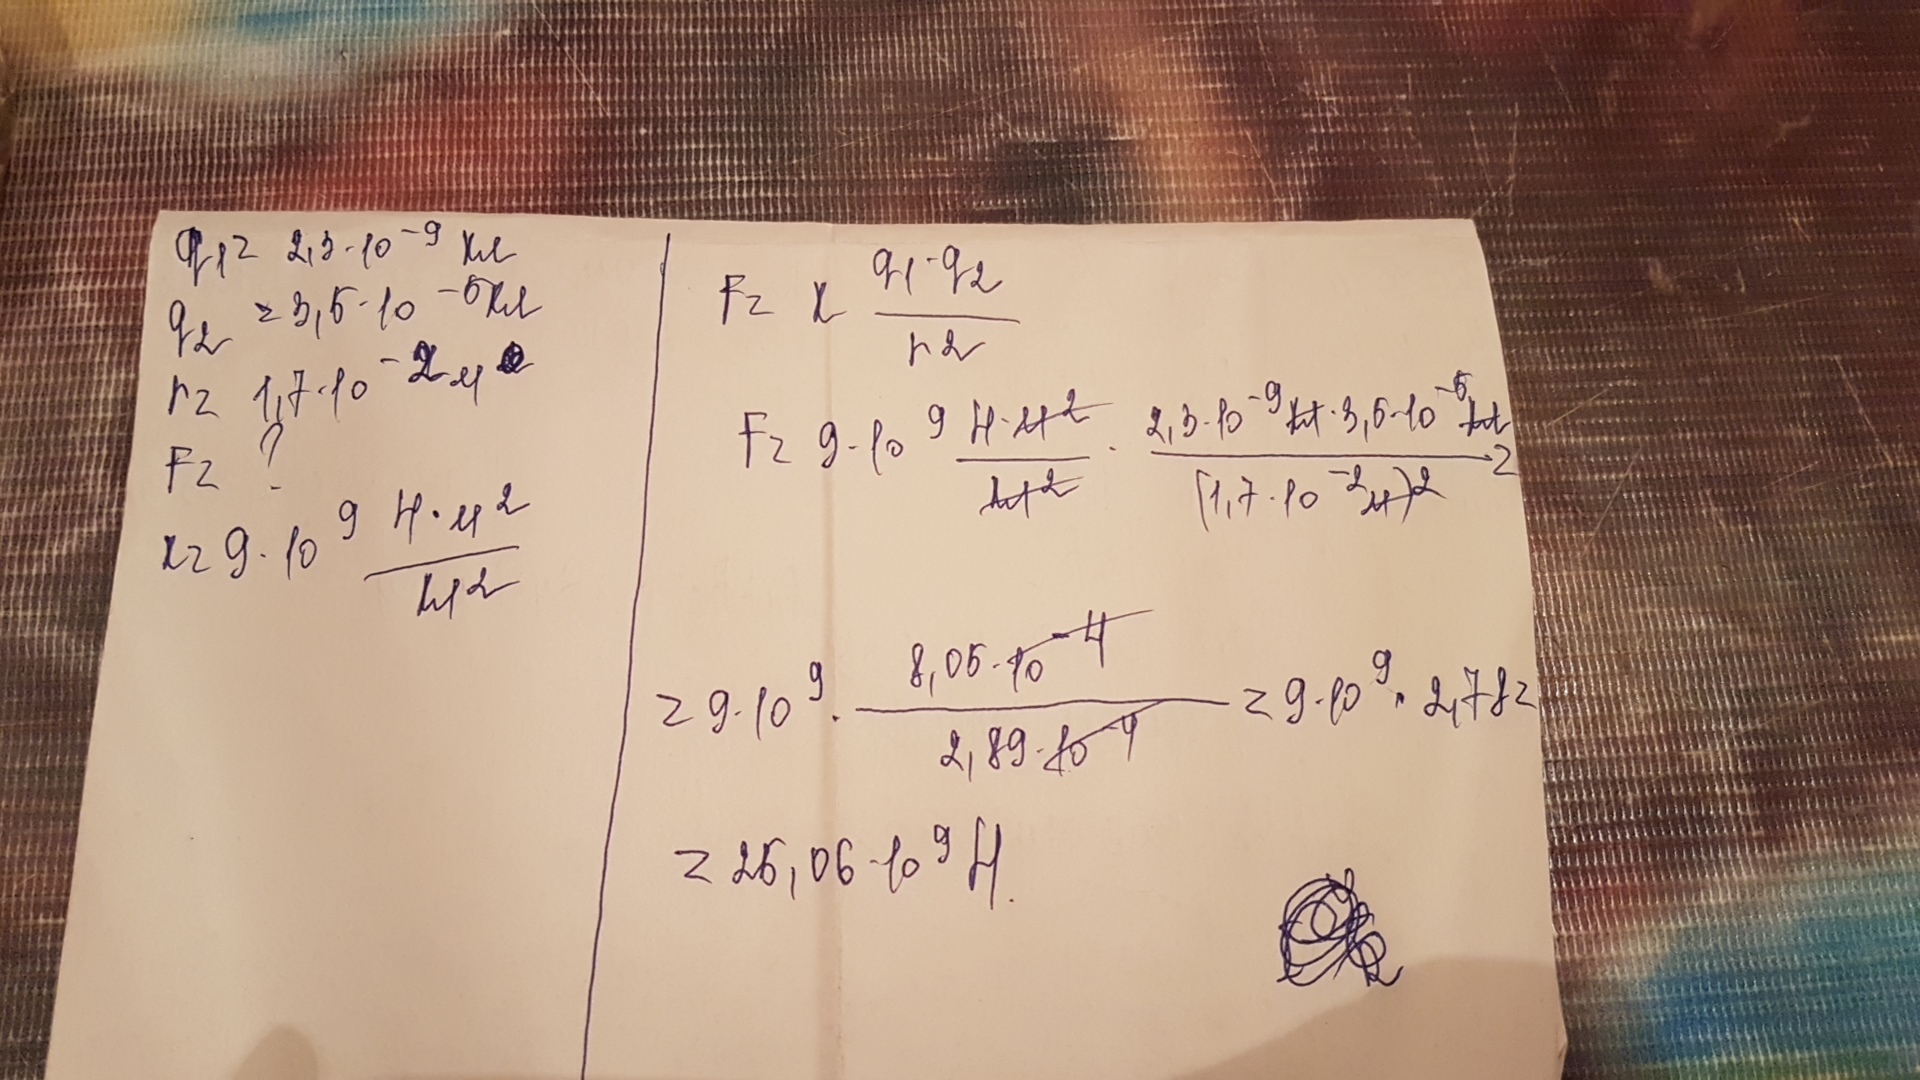 q₁ = 2,3·10⁻⁹ Кл
q₂ = 3,5·10⁻⁵ Кл
r = 1,7·10⁻² м
F = ?
k = 9·10⁹ Н·м² / Кл²
F = k q₁·q₂ / r²
F = 9·10⁹ Н·м² / Кл² · 2,3·10⁻⁹ Кл·3,5·10⁻⁵ Кл / (1,7·10⁻² м)² =
= 9·10⁹ · 8,05·10⁻⁴ / 2,89·10⁻⁴ = 9·10⁹ · 2,78 =
= 25,06·10⁹ Н.